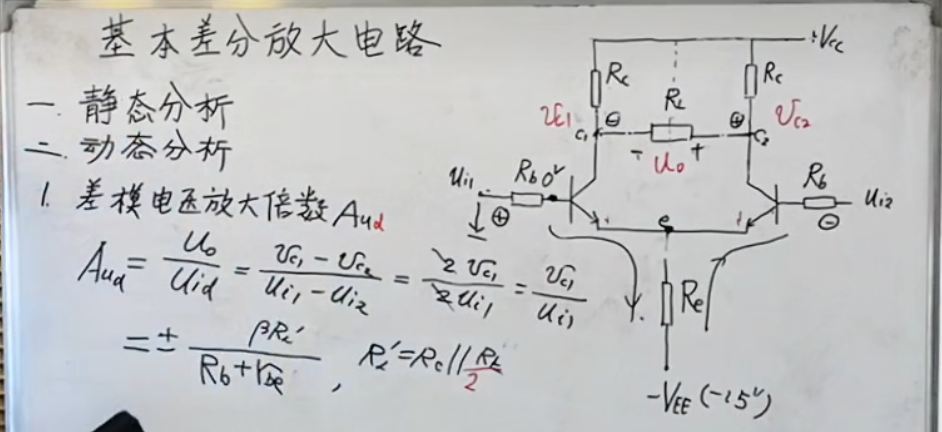 基本差分放大电路
一. 静态分析
二. 动态分析
1. 差模电压放大倍数 Aud
Aud = Uo/Uid = (Uc1 - Uc2)/(Ui1 - Ui2) = 2Uc1/2Ui1 = Uc1/Ui1
= ± βRL'/(Rb + rbe) , RL' = Rc // RL/2
+Vcc
Rc RL Rc
Uc1 C1 ⊖ ⊕ C2 Uc2
- Uo +
Ui1 Rb 0V Rb Ui2
⊕ e ⊖
Re
-VEE (-15V)